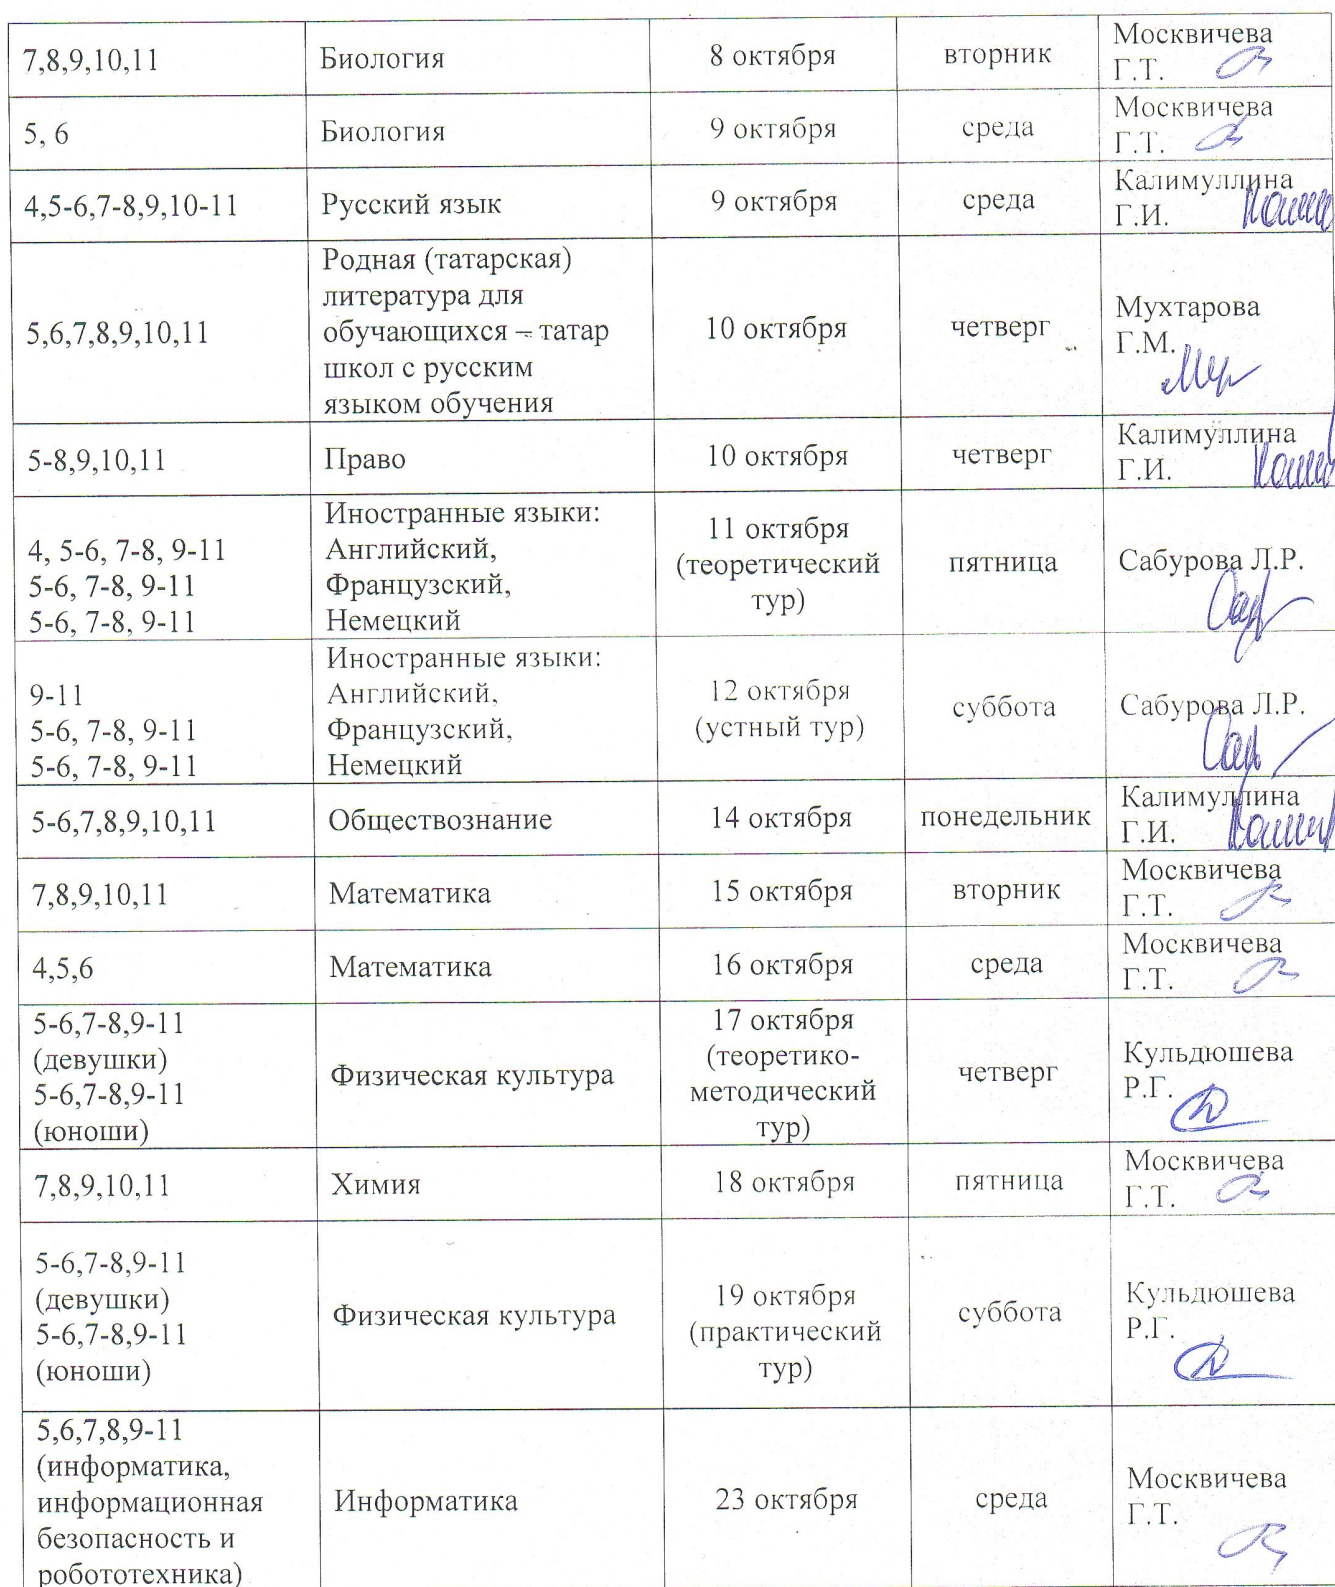 7,8,9,10,11
Биология
8 октября
вторник
Москвичева
Г.Т.
5, 6
Биология
9 октября
среда
Москвичева
Г.Т.
4,5-6,7-8,9,10-11
Русский язык
9 октября
среда
Калимуллина
Г.И.
5,6,7,8,9,10,11
Родная (татарская)
литература для
обучающихся – татар
школ с русским
языком обучения
10 октября
четверг
Мухтарова
Г.М.
5-8,9,10,11
Право
10 октября
четверг
Калимуллина
Г.И.
4, 5-6, 7-8, 9-11
5-6, 7-8, 9-11
5-6, 7-8, 9-11
Иностранные языки:
Английский,
Французский,
Немецкий
11 октября
(теоретический
тур)
пятница
Сабурова Л.Р.
9-11
5-6, 7-8, 9-11
5-6, 7-8, 9-11
Иностранные языки:
Английский,
Французский,
Немецкий
12 октября
(устный тур)
суббота
Сабурова Л.Р.
5-6,7,8,9,10,11
Обществознание
14 октября
понедельник
Калимуллина
Г.И.
7,8,9,10,11
Математика
15 октября
вторник
Москвичева
Г.Т.
4,5,6
Математика
16 октября
среда
Москвичева
Г.Т.
5-6,7-8,9-11
(девушки)
5-6,7-8,9-11
(юноши)
Физическая культура
17 октября
(теоретико-
методический
тур)
четверг
Кульдюшева
Р.Г.
7,8,9,10,11
Химия
18 октября
пятница
Москвичева
Г.Т.
5-6,7-8,9-11
(девушки)
5-6,7-8,9-11
(юноши)
Физическая культура
19 октября
(практический
тур)
суббота
Кульдюшева
Р.Г.
5,6,7,8,9-11
(информатика,
информационная
безопасность и
робототехника)
Информатика
23 октября
среда
Москвичева
Г.Т.